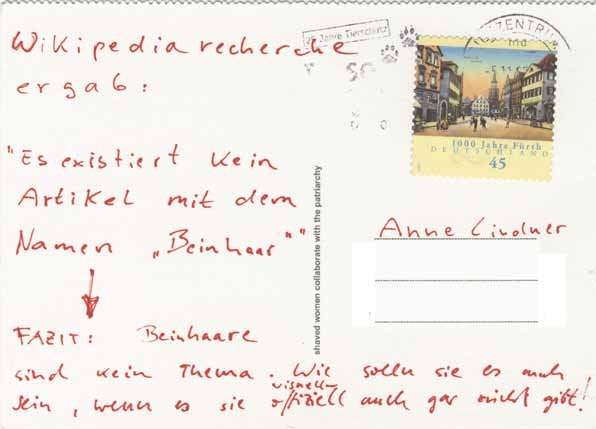 Wikipediarecherche
ergab:
"Es existiert kein
Artikel mit dem
Namen „Beinhaar""
FAZIT: Beinhaare
sind kein Thema. Wie sollen sie es auch
sein, wenn es sie visuell-offiziell auch gar nicht gibt!
shaved women collaborate with the patriarchy
Jahre Tierschutz
1000 Jahre Fürth
DEUTSCHLAND
45
Anne Lindner